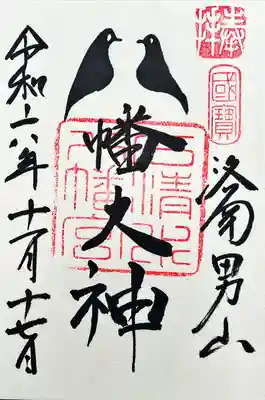 奉拝
國寶
洛南男山
八幡大神
石清水八幡宮
令和六年十一月十七日